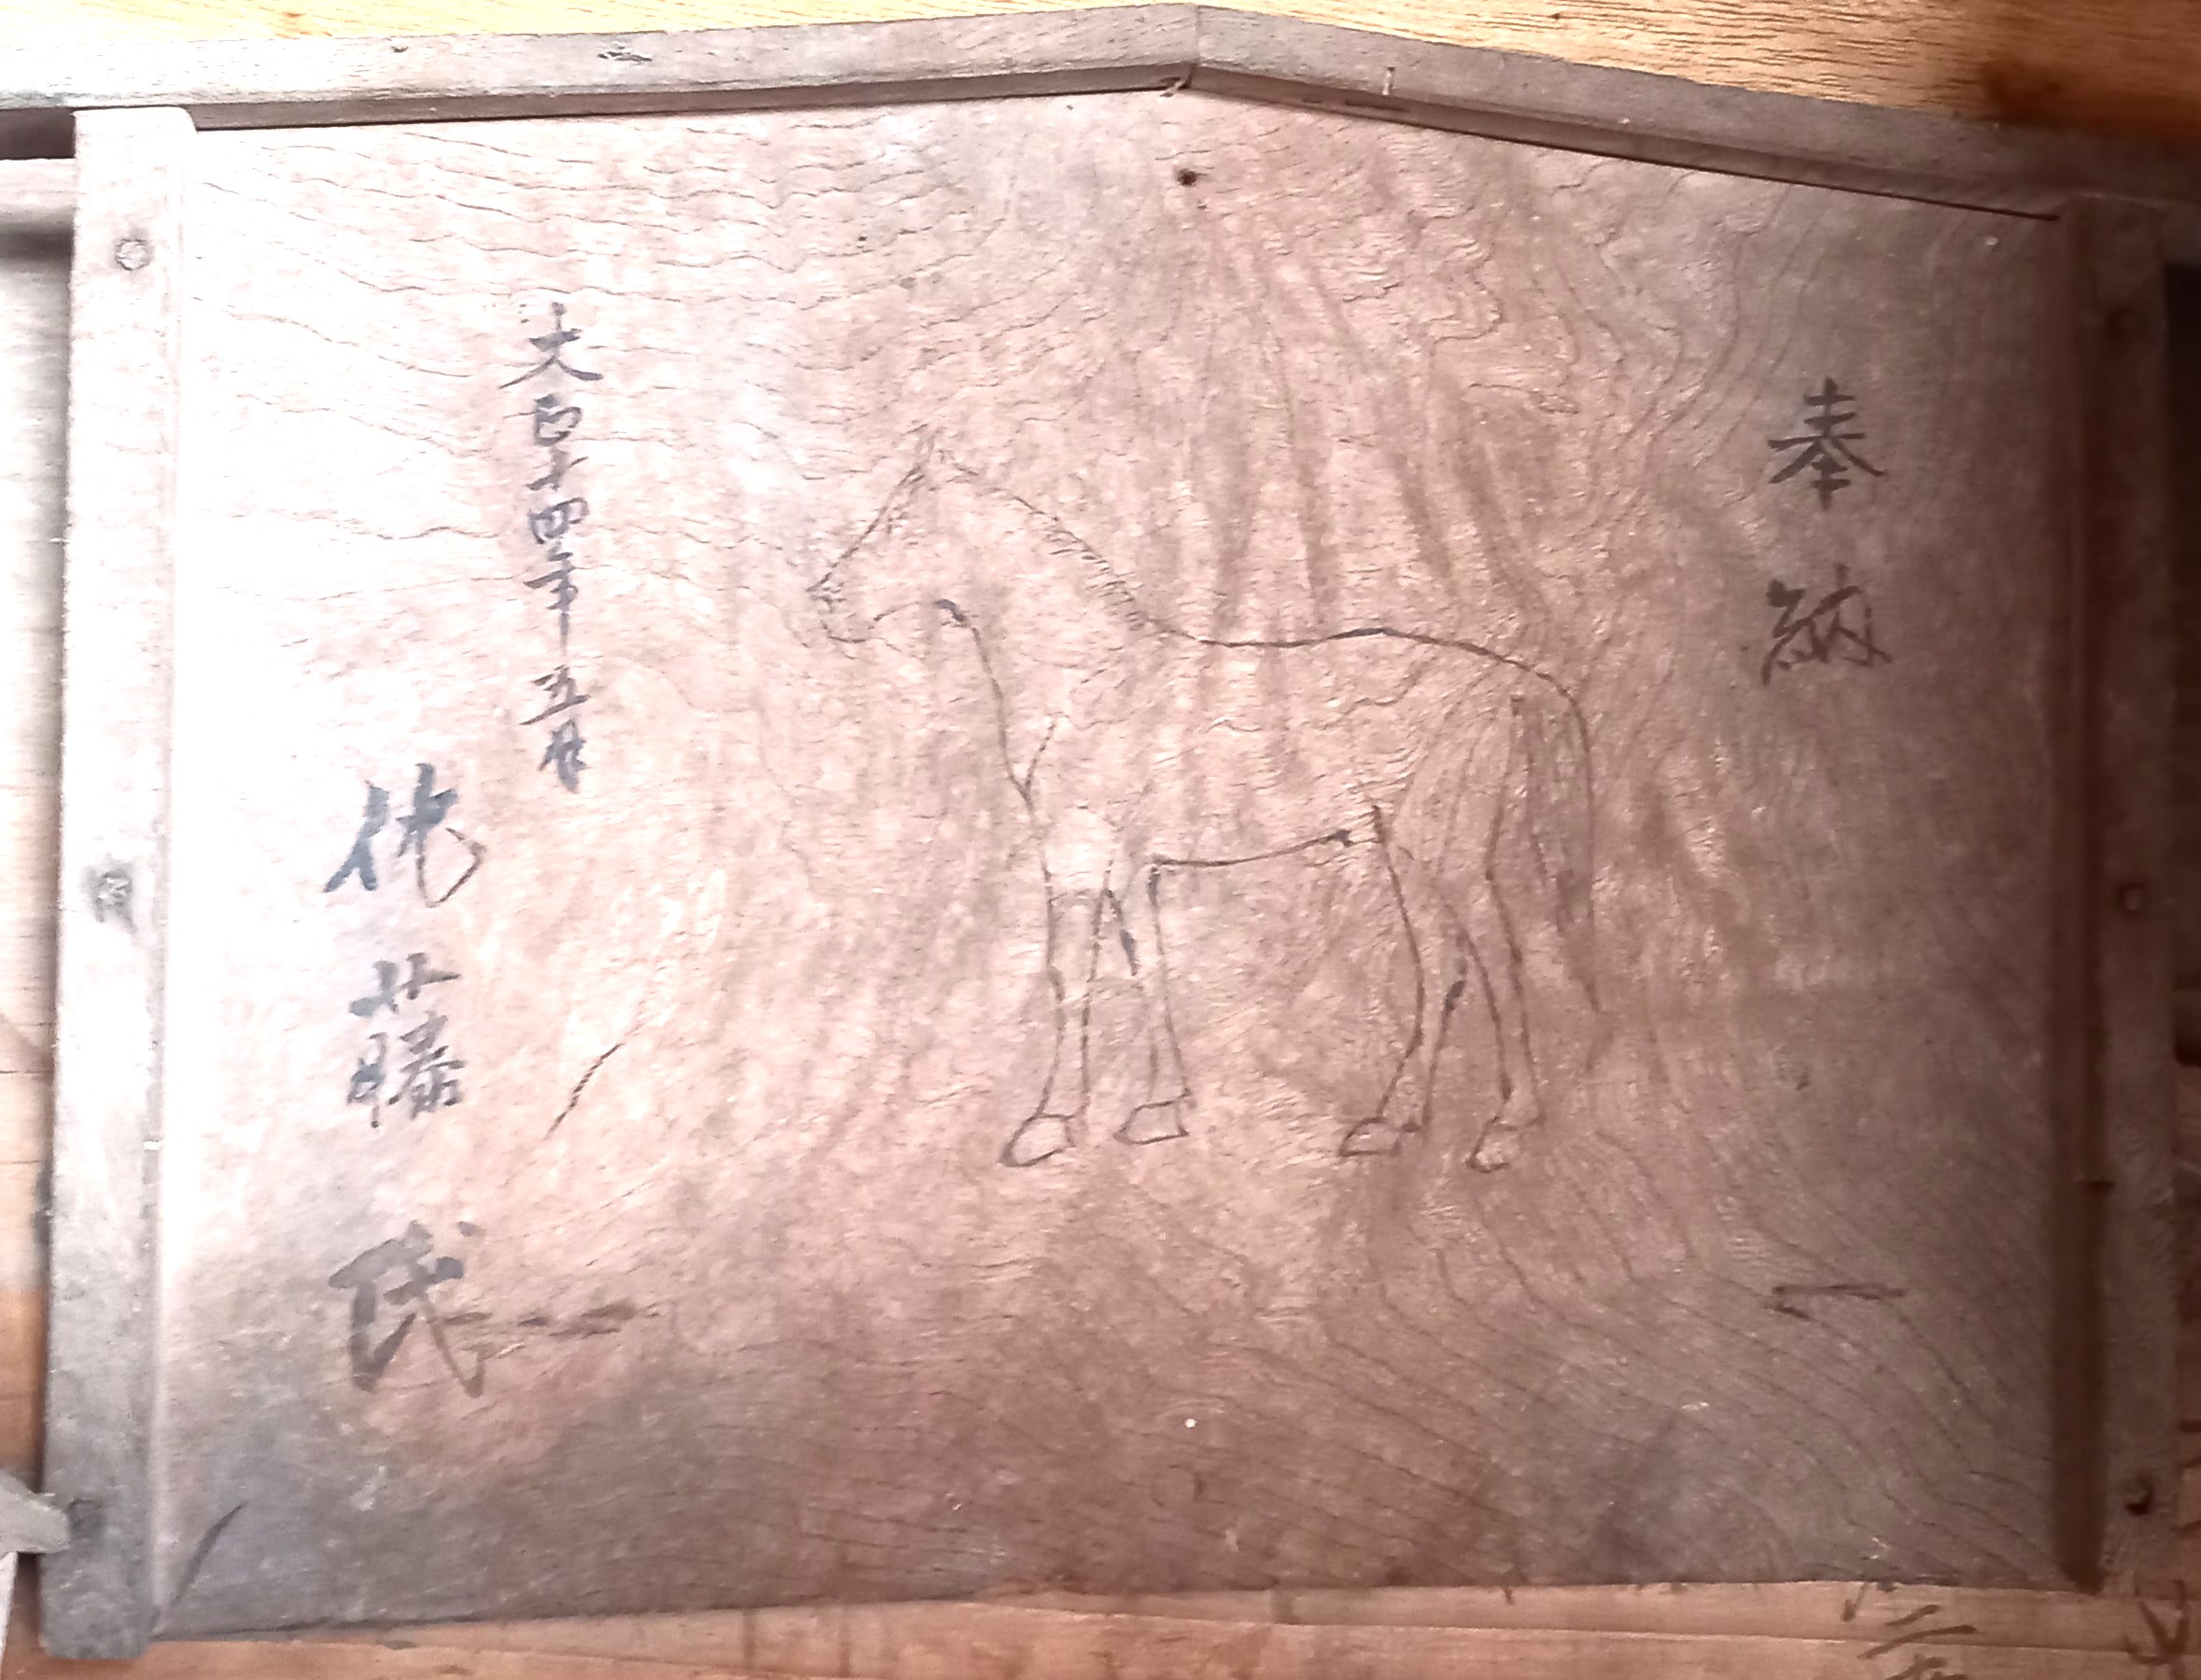 奉納
大正十四年五月
佐藤